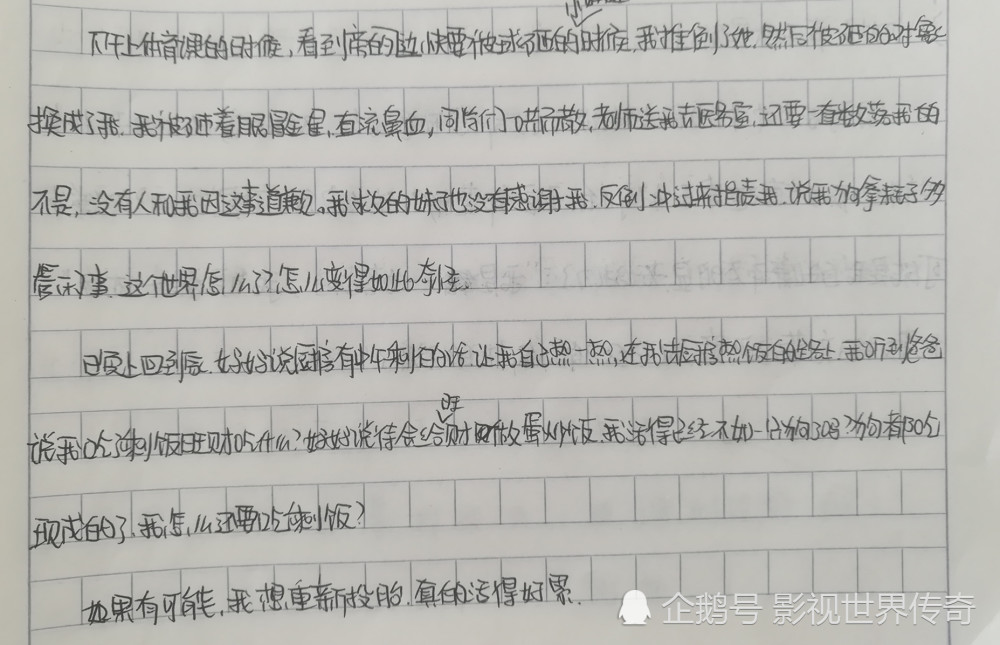 下午上体育课的时候,看到旁边,快要被球砸的时候,我推倒了她,然后被砸的对象
换成了我,我被砸着眼冒金星,直流鼻血,同学们一哄而散,老师送我去医务室,还要一直数落我的
不是,没有人和我因这事道歉。我救的妹子也没有感谢我,反倒冲过来指责我,说我狗拿耗子多
管闲事,这个世界怎么了,怎么变得如此奇怪。
晚上回到家,妈妈说厨房有中午剩的,让我自己热一热,在我去厨房热饭的路上,我听到爸爸
旺
说我吃剩饭旺财吃什么?妈妈说待会给财做蛋炒饭,我活得已经不如一只狗了吗?狗都吃
现成的了,我怎么还要吃剩饭?
如果有可能,我想重新投胎,真的活得好累。
企鹅号 影视世界传奇